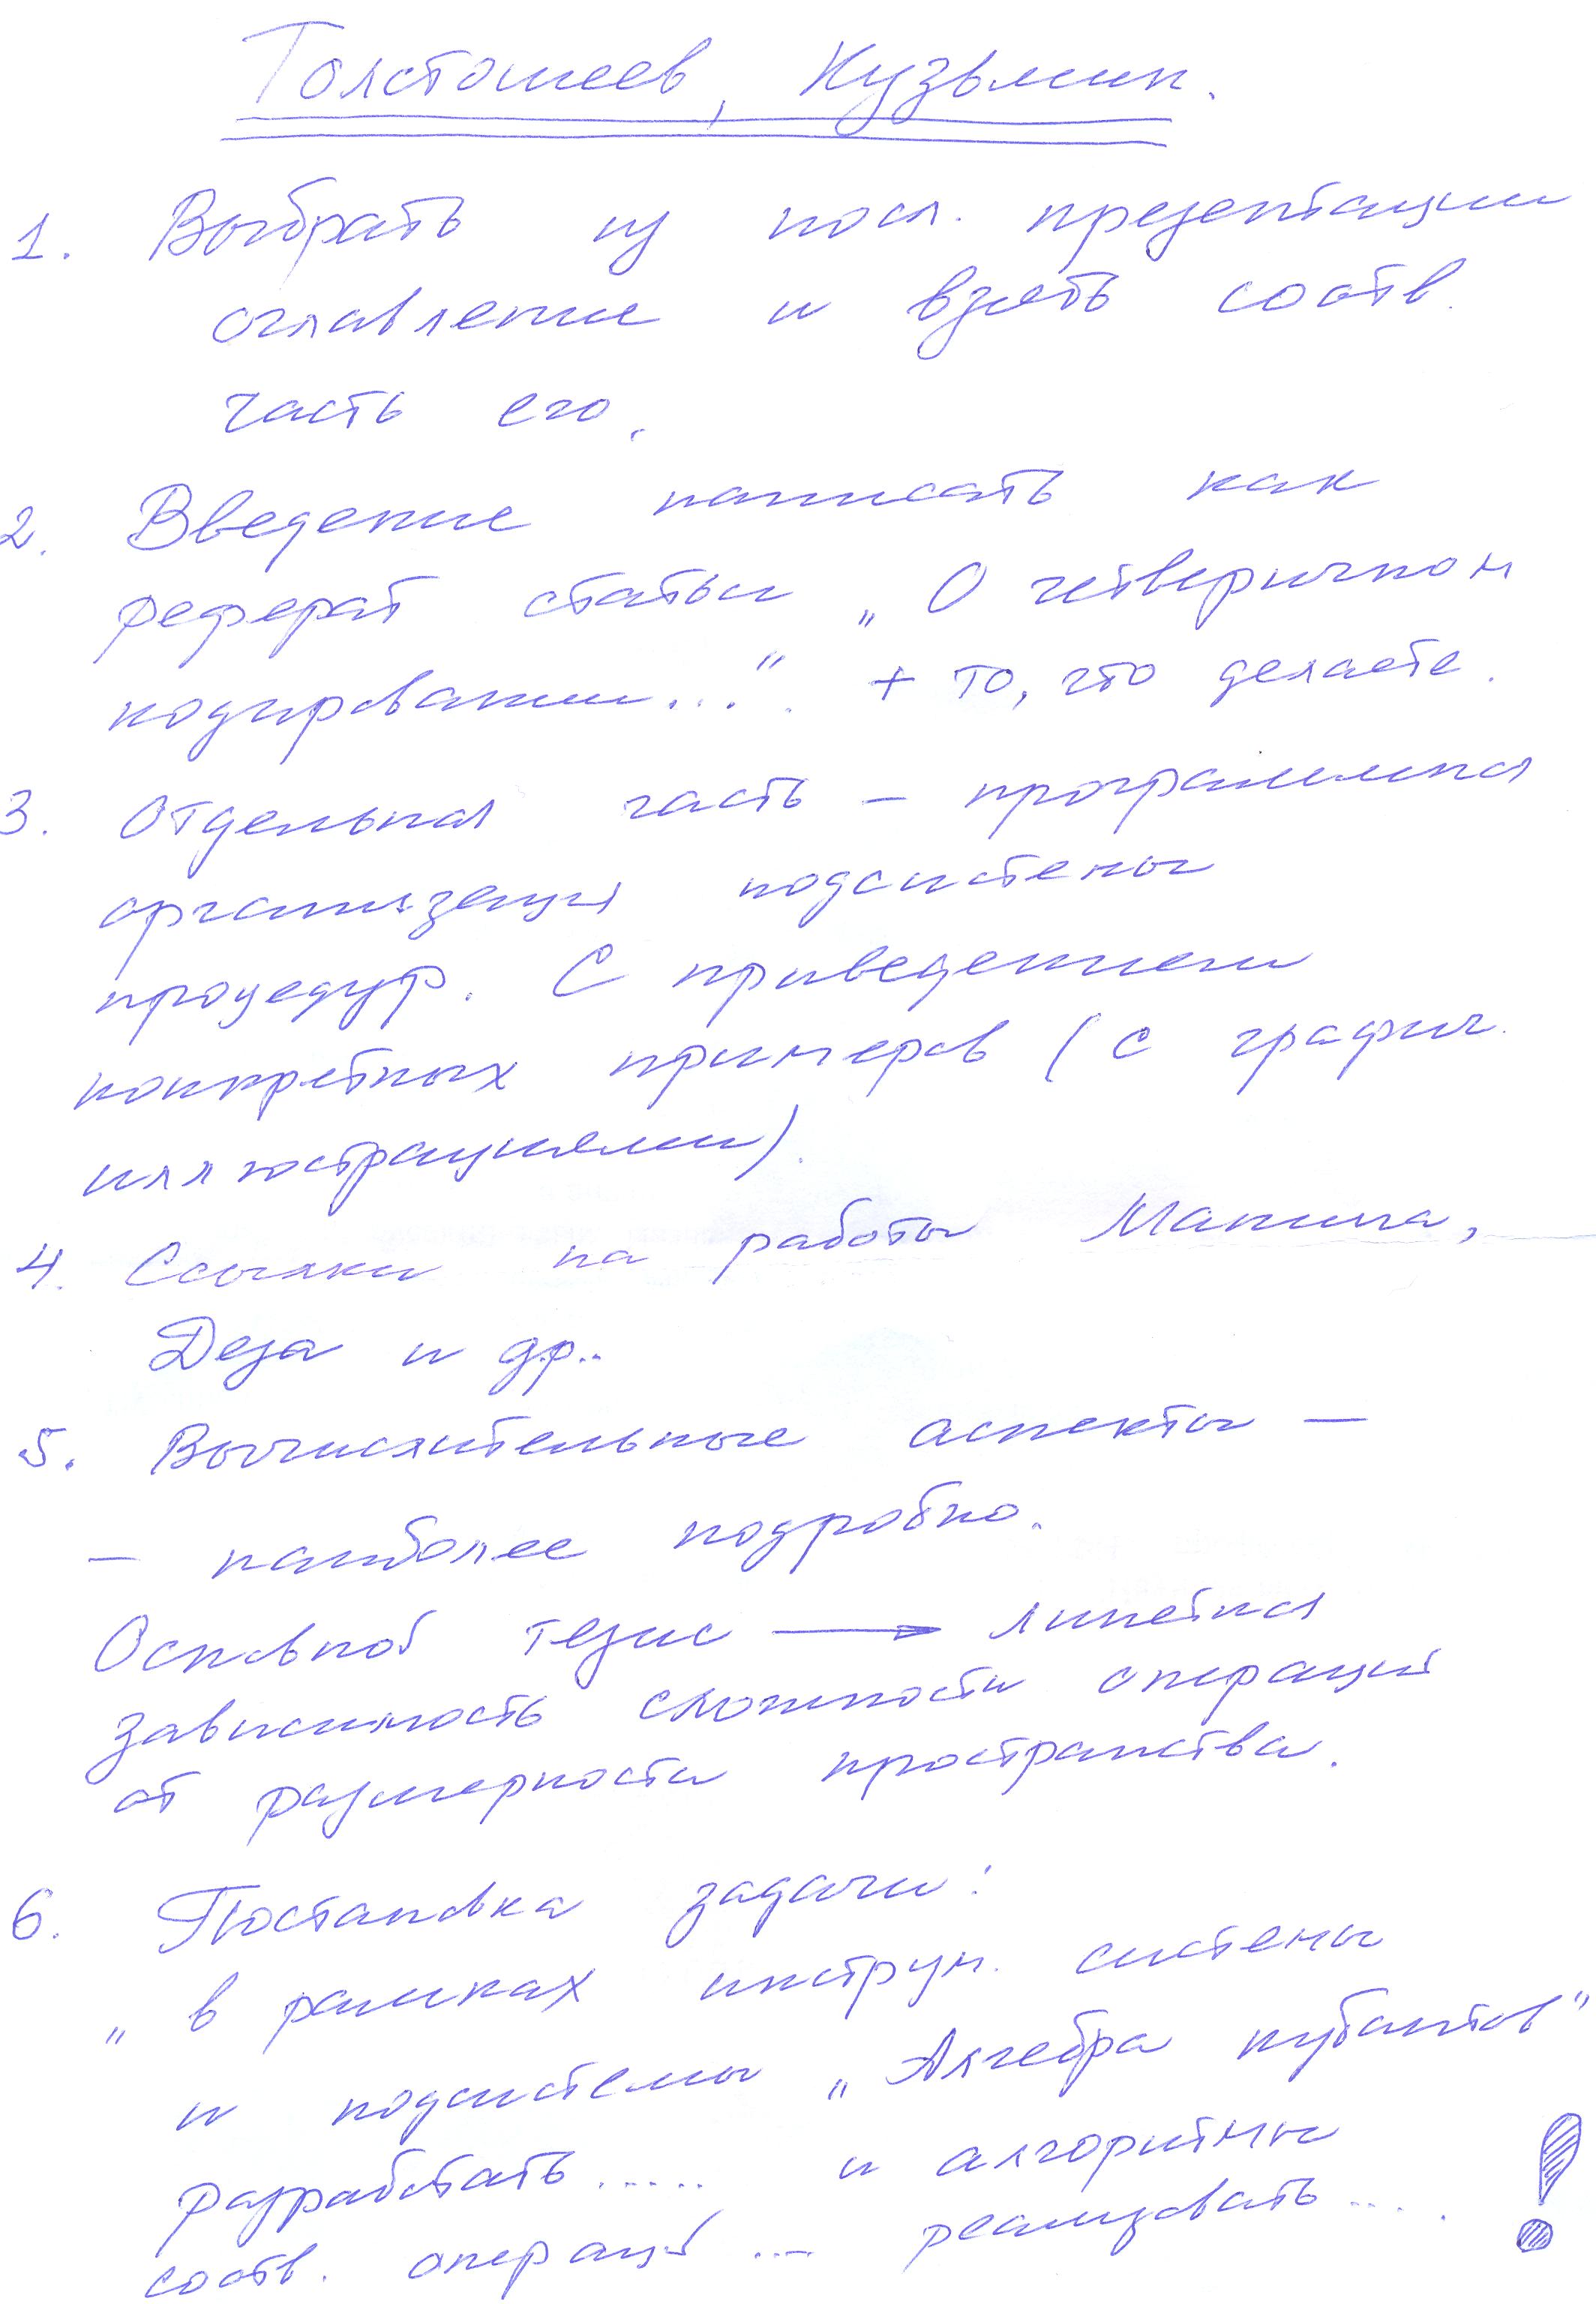 Толстошеев, Кузьмин.
1. Выбрать из посл. презентации
оглавление и взять соотв.
часть его.
2. Введение написать как
реферат статьи „О четверичном
кодировании...“. + то, что делаете.
3. Отдельная часть – программная
организация подсистемы
процедур. С приведением
конкретных примеров (с графич.
иллюстрациями).
4. Ссылки на работы Манина,
Деза и др..
5. Вычислительные аспекты –
– наиболее подробно.
Основной тезис → линейная
зависимость сложности операций
от размерности пространства.
6. Постановка задачи:
„ в рамках инструм. системы
и подсистемы „Алгебра кубантов”
разработать ..... и алгоритмы
соотв. операций ... реализовать .... !